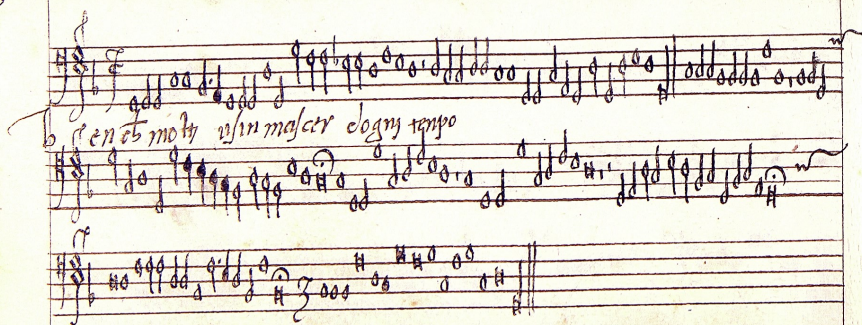 Ben ch̄ moltj usin mascer dognj tenpo